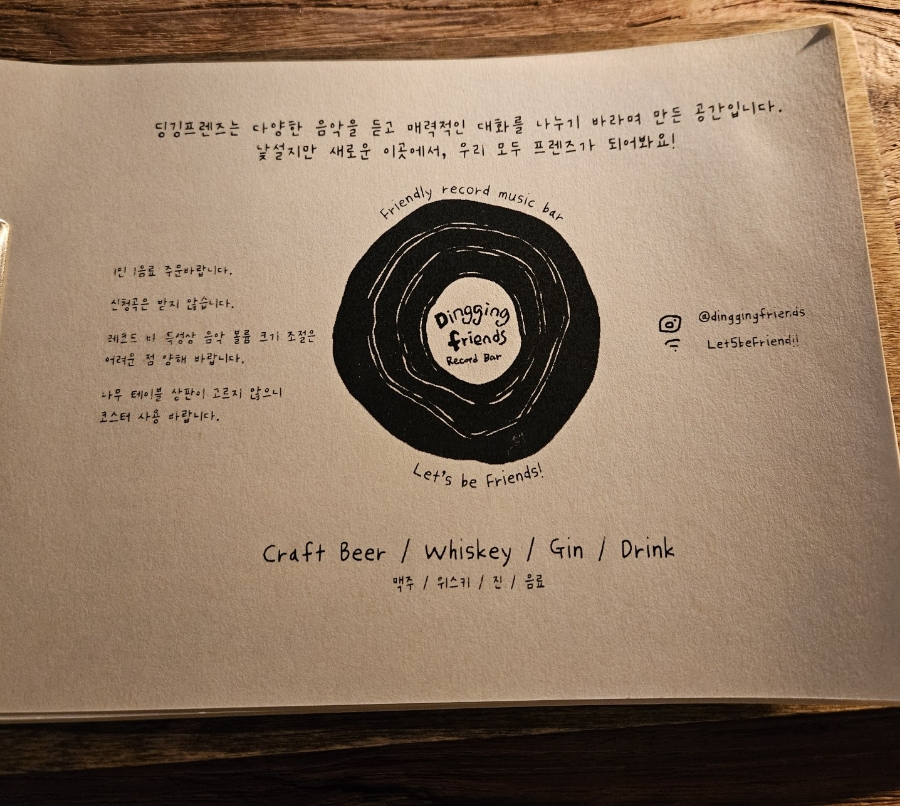 딩깅프렌즈는 다양한 음악을 듣고 매력적인 대화를 나누기 바라며 만든 공간입니다.
낯설지만 새로운 이곳에서, 우리 모두 프렌즈가 되어봐요!
Friendly record music bar
1인 1음료 주문바랍니다.
신청곡은 받지 않습니다.
레코드 바 특성상 음악 볼륨 크기 조절은
어려운 점 양해 바랍니다.
나무 테이블 상판이 고르지 않으니
코스터 사용 바랍니다.
Dingging
friends
Record Bar
@dinggingfriends
Let5beFriend!!
Let's be Friends!
Craft Beer / Whiskey / Gin / Drink
맥주 / 위스키 / 진 / 음료